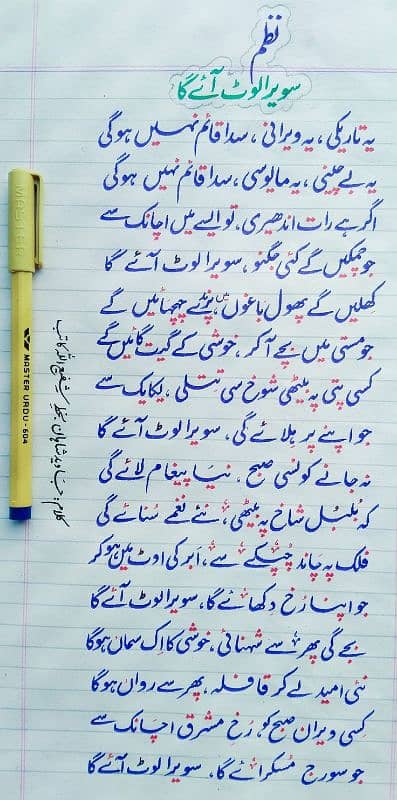 نظم
سویرا لوٹ آئے گا
یہ تاریکی، یہ ویرانی، سدا قائم نہیں ہوگی
یہ بے چینی، یہ مایوسی، سدا قائم نہیں ہوگی
اگر ہے رات اندھیری، تو ایسے میں اچانک سے
جو چمکیں گے کئی جگنو، سویرا لوٹ آئے گا
کھلیں گے پھول باغوں میں، پرندے چہچہائیں گے
جو مستی میں بچے آ کر، خوشی کے گیت گائیں گے
کسی پتی پہ بیٹھی شوخ سی تتلی، یکایک سے
جو اپنے پر ہلائے گی، سویرا لوٹ آئے گا
نہ جانے کونسی صبح، نیا پیغام لائے گی
کہ بُلبُل شاخ پہ بیٹھی، نئے نغمے سُنائے گی
فلک پہ چاند چُپکے سے، اَبر کی اوٹ میں ہو کر
جو اپنا رُخ دکھائے گا، سویرا لوٹ آئے گا
بجے گی پھر سے شہنائی، خوشی کا اِک سماں ہوگا
نئی امید لے کر قافلہ، پھر سے رواں ہوگا
کِسی ویران صبح کو، رُخِ مشرق اچانک سے
جو سورج مُسکرائے گا، سویرا لوٹ آئے گا
MASTER
MASTER URDU - 604
کلام: جاوید شاہان